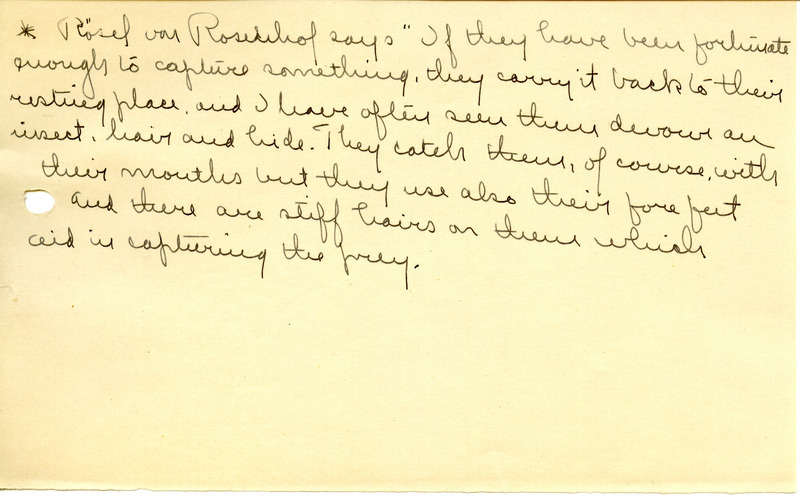 * Rösel von Rosenhof says "If they have been fortunate
enough to capture something, they carry it back to their
resting place, and I have often seen them devour an
insect, hair and hide. They catch them, of course, with
their mouths but they use also their fore feet
and there are stiff hairs on them which
aid in capturing the prey.